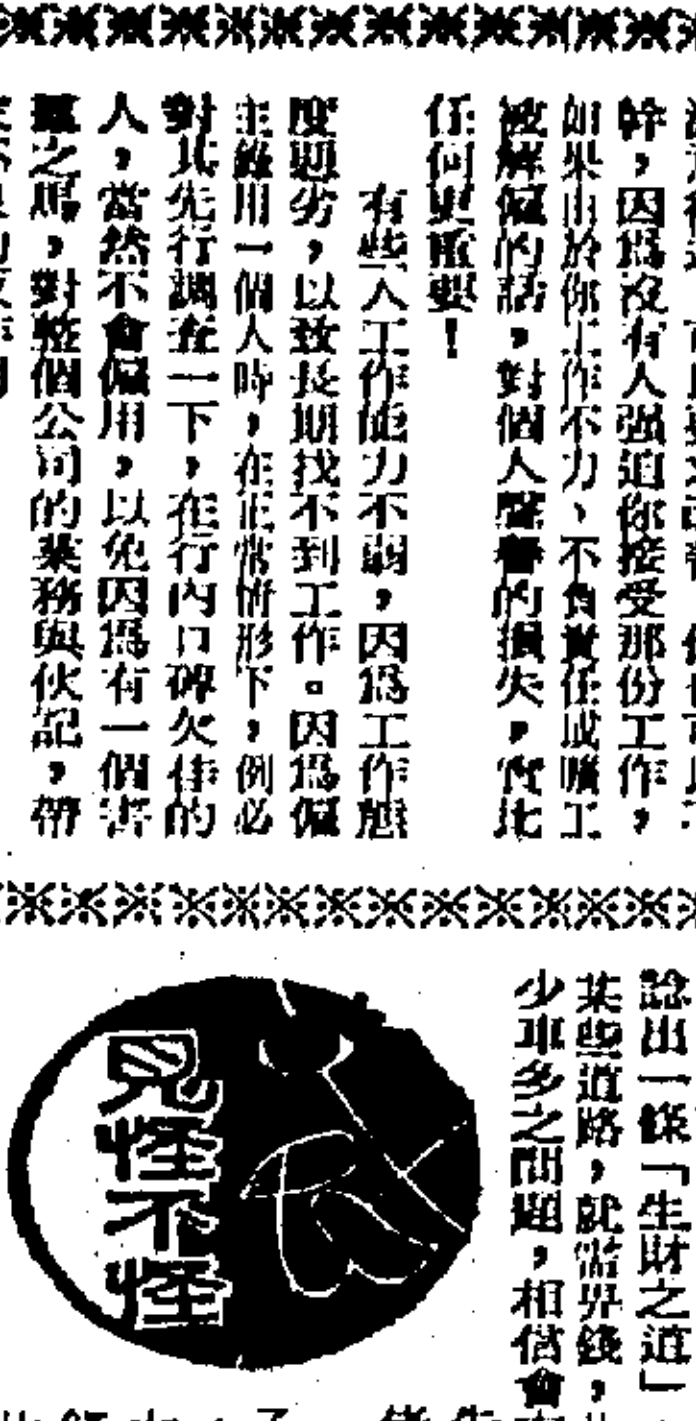 幹，因爲沒有人强迫你接受那份工作，
如果由於你工作不力、不負責任或曠工
被解僱的話，對個人聲譽的損失，實比
任何更重要！
有些人工作能力不弱，因爲工作態
度惡劣，以致長期找不到工作。因爲僱
主錄用一個人時，在正常情形下，例必
對其先行調查一下，在行內口碑欠佳的
人，當然不會僱用，以免因爲有一個害
羣之馬，對整個公司的業務與伙記，帶
諗出一條「生財之道」
某些道路，就需畀錢，
少車多之問題，相信會
見怪不怪